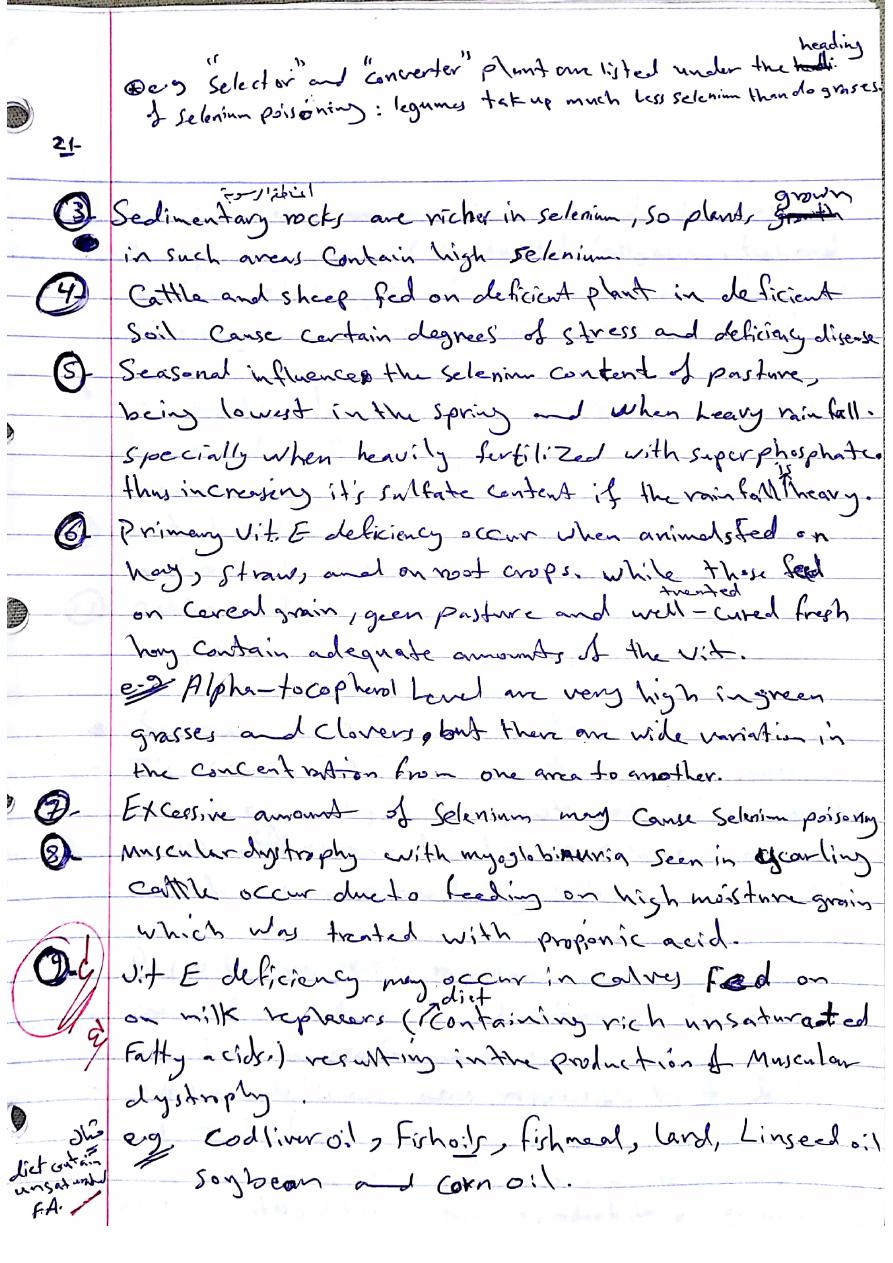 ⊛ e.g "Selector" and "converter" plant are listed under the heading
of selenium poisoning : legumes take up much less selenium than do grasses.
21-
③ Sedimentary rocks are richer in selenium, so plants grown
in such areas contain high selenium.
④ Cattle and sheep fed on deficient plant in deficient
Soil Cause certain degrees of stress and deficiency disease
⑤ Seasonal influences the selenium content of pasture,
being lowest in the spring and when heavy rain fall.
specially when heavily fertilized with superphosphate.
thus increasing it's sulfate content if the rainfall is heavy.
⑥ Primary Vit. E deficiency occur when animals fed on
hay, straw, and on root crops. while those feed
on cereal grain, geen pasture and well-cured treated fresh
hay contain adequate amounts of the vit.
e.g Alpha-tocopherol Level are very high in green
grasses and clovers, but there are wide variation in
the concentration from one area to another.
⑦- Excessive amount of Selenium may cause Selenium poisoning
⑧- Muscular dystrophy with myoglobinuria seen in yearling
cattle occur due to feeding on high moisture grain
which was treated with proponic acid.
⑨- Vit E deficiency may occur in calves Fed on
on milk replacers (diet containing rich unsaturated
Fatty acids.) resulting in the production of Muscular
dystrophy.
e.g Codliver oil, Fish oils, fishmeal, lard, Linseed oil
Soybean and Corn oil.
مثال
diet contain
unsaturated
F.A.